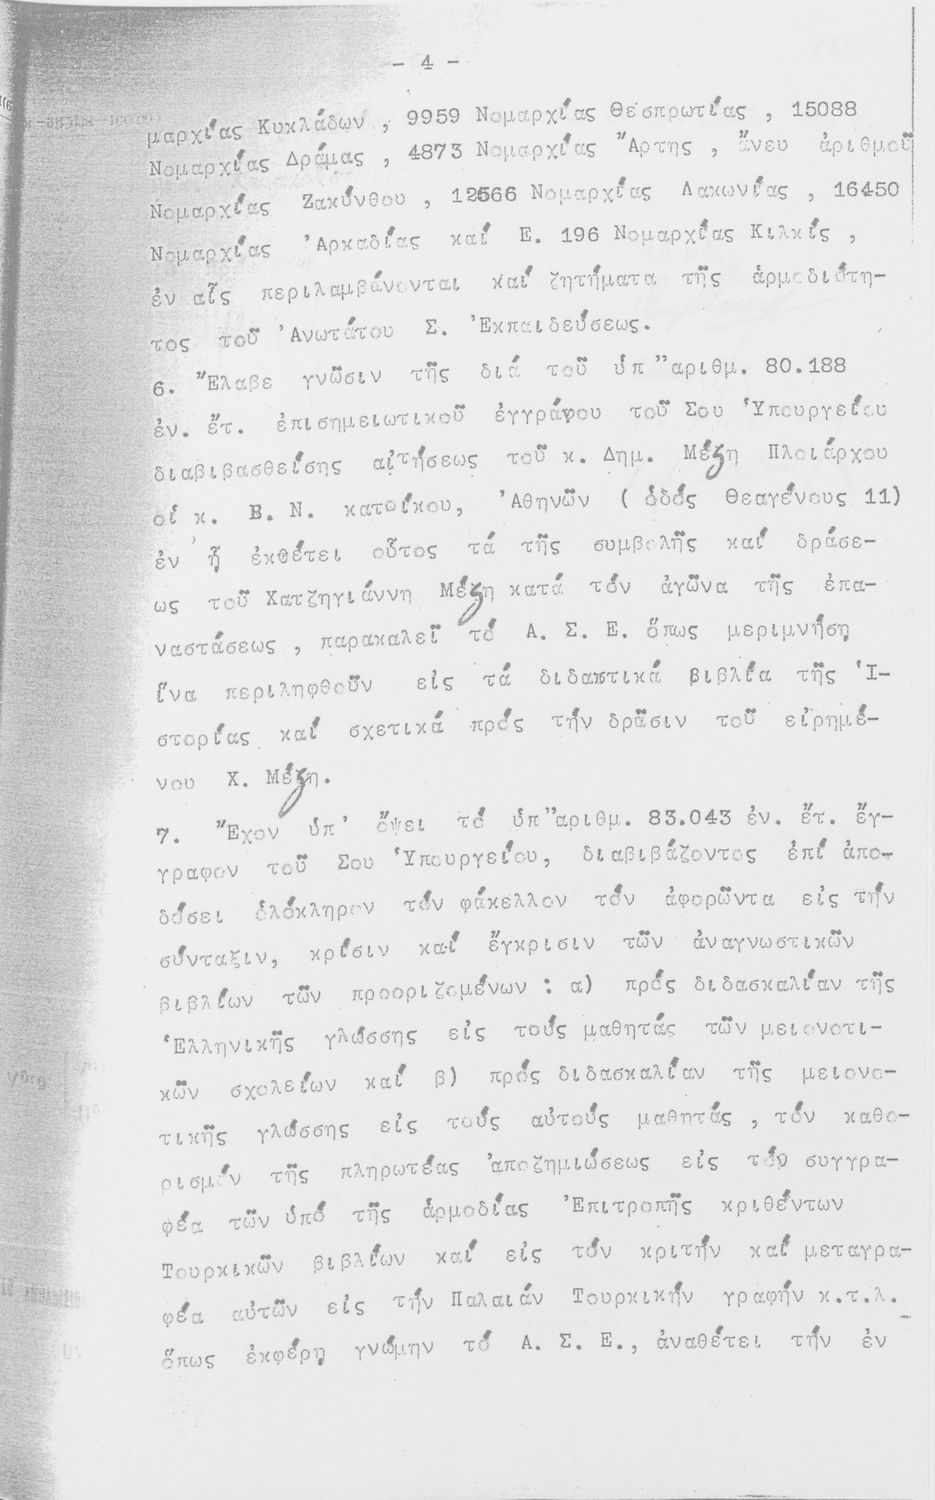 - 4 -
μαρχίας Κυκλάδων , 9959 Νομαρχίας Θεσπρωτίας , 15088
Νομαρχίας Δράμας , 4873 Νομαρχίας Ἄρτης , ἄνευ ἀριθμοῦ
Νομαρχίας Ζακύνθου , 12566 Νομαρχίας Λακωνίας , 16450
Νομαρχίας Ἀρκαδίας καί Ε. 196 Νομαρχίας Κιλκίς ,
ἐν αἷς περιλαμβάνονται καί ζητήματα τῆς ἁρμοδιότη-
τος τοῦ Ἀνωτάτου Σ. Ἐκπαιδεύσεως.
6. Ἔλαβε γνῶσιν τῆς διά τοῦ ὑπ"αριθμ. 80.188
ἐν. ἔτ. ἐπισημειωτικοῦ ἐγγράφου τοῦ Σου Ὑπουργείου
διαβιβασθείσης αἰτήσεως τοῦ κ. Δημ. Μέξη Πλοιάρχου
οἰ κ. Β. Ν. κατοίκου, Ἀθηνῶν ( ὁδός Θεαγένους 11)
ἐν ᾗ ἐκθέτει οὗτος τά τῆς συμβολῆς καί δράσε-
ως τοῦ Χατζηγιάννη Μέξη κατά τόν ἀγῶνα τῆς ἐπα-
ναστάσεως , παρακαλεῖ τό Α. Σ. Ε. ὅπως μεριμνήσῃ
ἵνα περιληφθοῦν εἰς τά διδακτικά βιβλία τῆς Ἱ-
στορίας καί σχετικά πρός τήν δρᾶσιν τοῦ εἰρημέ-
νου Χ. Μέξη.
7. Ἔχον ὑπ' ὄψει τό ὑπ"αριθμ. 83.043 ἐν. ἔτ. ἔγ-
γραφον τοῦ Σου Ὑπουργείου, διαβιβάζοντος ἐπί ἀπο-
δόσει ὁλόκληρον τόν φάκελλον τόν ἀφορῶντα εἰς τήν
σύνταξιν, κρίσιν καί ἔγκρισιν τῶν ἀναγνωστικῶν
βιβλίων τῶν προοριζομένων : α) πρός διδασκαλίαν τῆς
Ἑλληνικῆς γλώσσης εἰς τούς μαθητάς τῶν μειονοτι-
κῶν σχολείων καί β) πρός διδασκαλίαν τῆς μειονο-
τικῆς γλώσσης εἰς τούς αὐτούς μαθητάς , τόν καθο-
ρισμόν τῆς πληρωτέας ἀποζημιώσεως εἰς τόν συγγρα-
φέα τῶν ὑπό τῆς ἁρμοδίας Ἐπιτροπῆς κριθέντων
Τουρκικῶν βιβλίων καί εἰς τόν κριτήν καί μεταγρα-
φέα αὐτῶν εἰς τήν Παλαιάν Τουρκικήν γραφήν κ.τ.λ.
ὅπως ἐκφέρῃ γνώμην τό Α. Σ. Ε., ἀναθέτει τήν ἐν